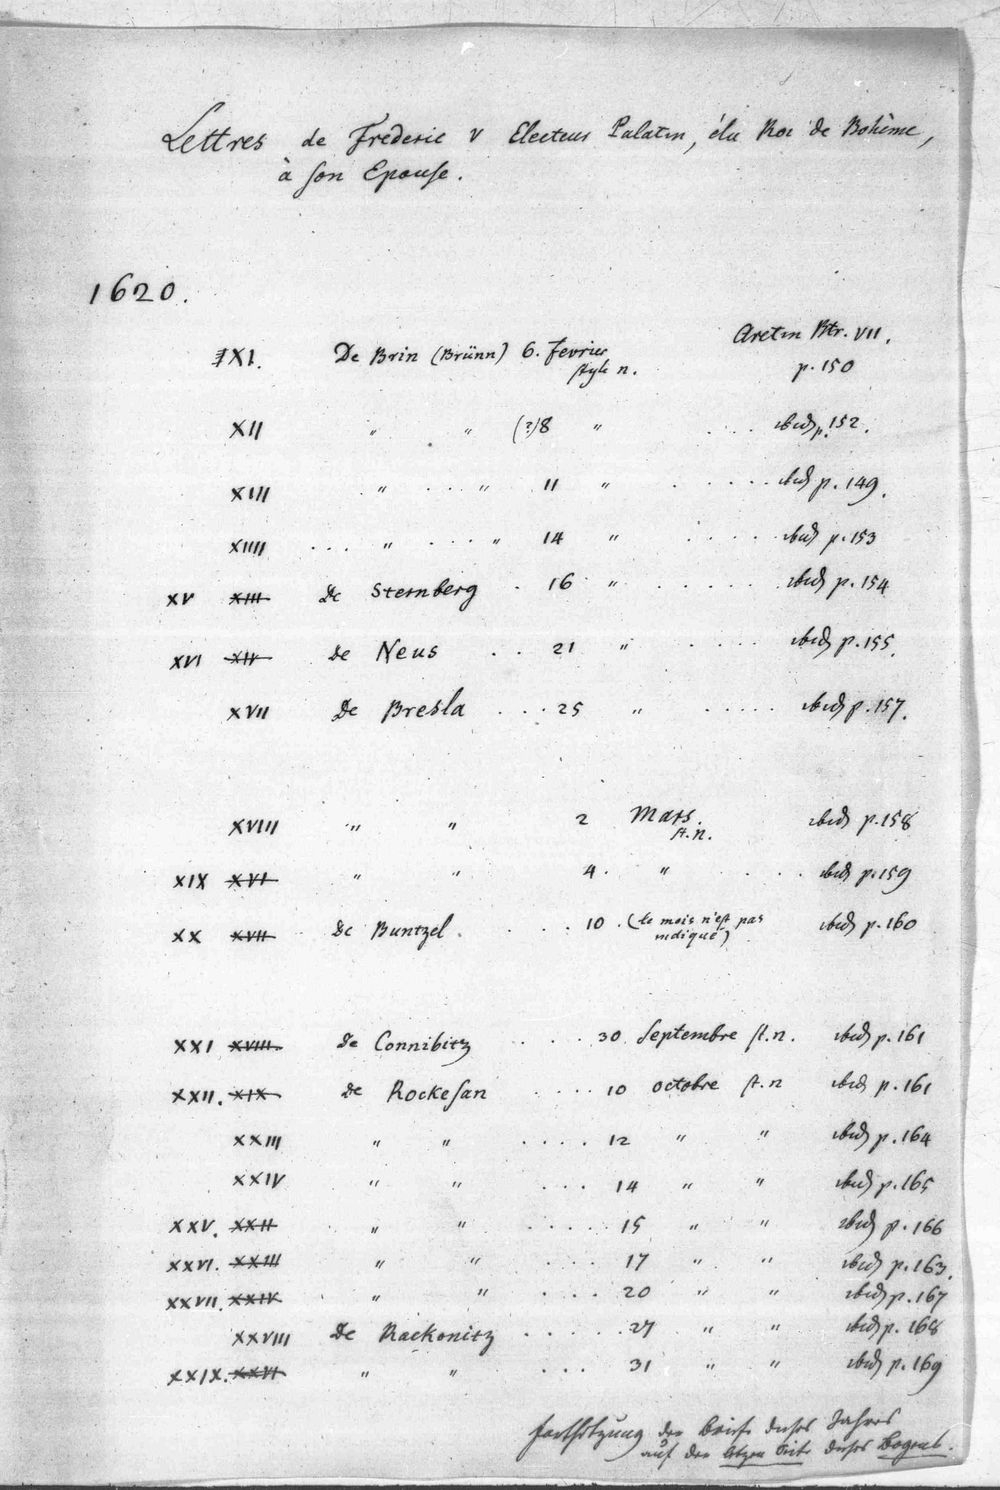 Lettres de Frederic V Electeur Palatin, élu Roi de Bohême,
à son Epouse.
1620.
XI. De Brin (Brünn) 6. Fevrier Aretin Btr. VII.
style n. p. 150
XII " " (?) 8 " . . . . ibid p. 152.
XIII " . . . " 11 " . . . . . ibid p. 149.
XIIII . . . . " . . . . " 14 " . . . . . ibid p. 153
XV XIII De Sternberg . 16 " . . . . . ibid p. 154
XVI XIV De Neus . . 21 " . . . . . ibid p. 155.
XVII De Bresla . . . 25 " . . . . . ibid p. 157.
XVIII " " 2 Mars. ibid p. 158
st. n.
XIX XVI " " 4. " . . . . ibid p. 159
XX XVII De Buntzel . . . . . 10 . (le mois n'est pas ibid p. 160
indiqué)
XXI XVIII. De Connibitz . . . . 30 Septembre st. n. ibid p. 161
XXII. XIX De Rockesan . . . . 10 octobre st. n ibid p. 161
XXIII " " . . . . 12 " " ibid p. 164
XXIV " " . . . 14 " " ibid p. 165
XXV. XXII " " . . . . . 15 " " ibid p. 166
XXVI. XXIII " " 17 " " ibid p. 163.
XXVII. XXIV " " . . . . 20 " " ibid p. 167
XXVIII De Rackonitz . . . . . 27 " " ibid p. 168
XXIX. XXVI " " . . . 31 " " ibid p. 169
Fortsetzung der Briefe dieses Jahres
auf der letzten Seite dieses Bogens.